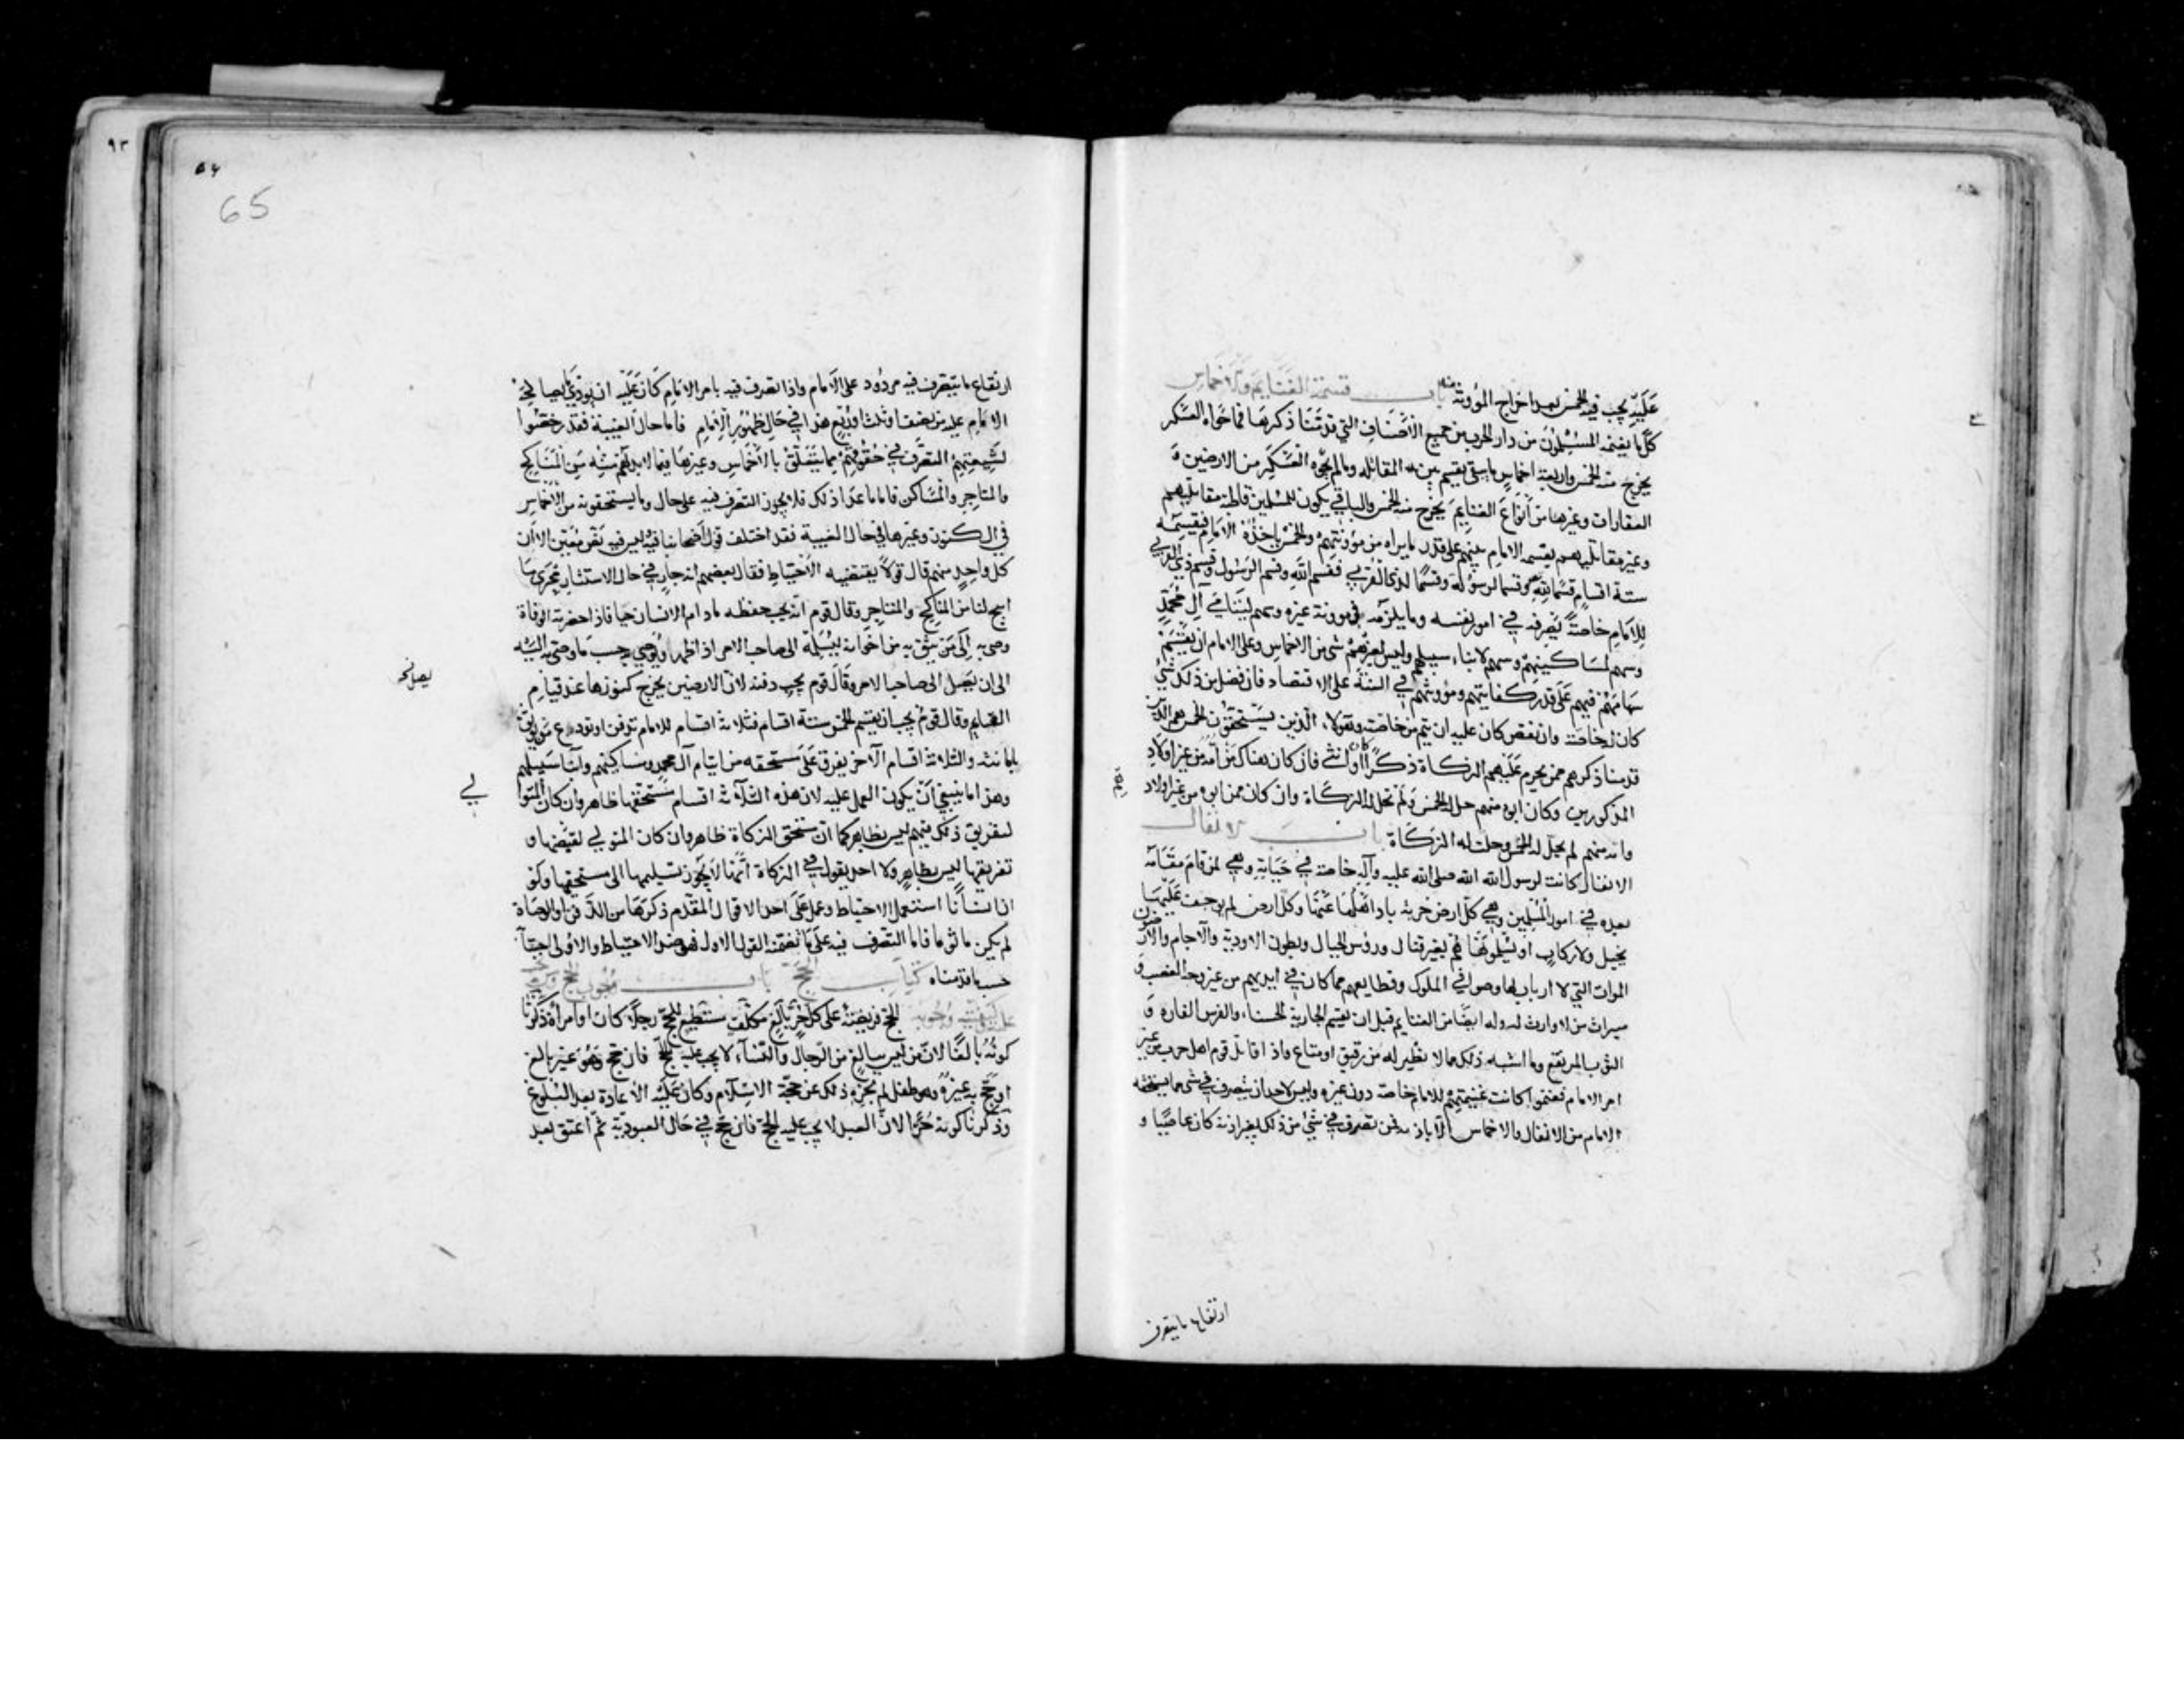 عليه يجب فيه الخمس بعد اخراج المؤونة منه باب قسمة الغنايم والاخماس
كل ما يغنمه المسلمون من دار الحرب من جميع الاصناف التي قدمنا ذكرها فما حواه العسكر
يخرج منه الخمس واربعة اخماس ما بقي يقسم بين المقاتلة وما لم يحوه العسكر من الارضين و
العقارات وغيرها من انواع الغنايم يخرج منه الخمس والباقي يكون للمسلمين قاطبة مقاتليهم
وغير مقاتليهم يقسمه الامام بينهم على قدر ما يراه من مؤونتهم والخمس ياخذه الامام فيقسمه
ستة اقسام قسما لله وقسما لرسوله وقسما لذي القربى فقسم الله وقسم الرسول وقسم ذي القربى
للامام خاصة يصرفه في امور نفسه وما يلزمه من مؤونة غيره وسهم ليتامى آل محمد
وسهم لمساكينهم وسهم لابناء سبيلهم وليس لغيرهم شئ من الاخماس وعلى الامام ان يقسم
سهامهم فيهم على قدر كفايتهم ومؤونتهم في السنة على الاقتصاد فان فضل من ذلك شئ
كان له خاصة وان نقص كان عليه ان يتم من خاصته وهؤلاء الذين يستحقون الخمس هم الذين
قدمنا ذكرهم ممن يحرم عليهم الزكاة ذكرا كان او انثى فان كان هناك من امه من غير اولاد
المذكورين وكان ابوه منهم حل له الخمس ولم تحل له الزكاة وان كان ممن ابوه من غير اولاد
وامه منهم لم يحل له الخمس وحلت له الزكاة باب الانفال
الانفال كانت لرسول الله صلى الله عليه وآله خاصة في حياته وهي لمن قام مقامه
بعده في امور المسلمين وهي كل ارض خربة باد اهلها عنها وكل ارض لم يوجف عليها
بخيل ولا ركاب او يسلمونها هم بغير قتال ورؤس الجبال وبطون الاودية والآجام والارضون
الموات التي لا ارباب لها وصوافي الملوك وقطايعهم مما كان في ايديهم من غير وجه الغصب و
ميراث من لا وارث له وله ايضا من الغنايم قبل ان يقسم الجارية الحسناء والفرس الفاره و
الثوب المرتفع وما اشبه ذلك مما لا نظير له من رقيق او متاع واذا قاتل قوم اهل حرب من غير
امر الامام فغنموا كانت غنيمتهم للامام خاصة دون غيره وليس لاحد ان يتصرف في شئ مما يستحقه
الامام من الانفال والاخماس الا باذنه فمن تصرف في شئ من ذلك بغير اذنه كان عاصيا و
ارتفاع ما يتصرف
٩٣
65
ارتفاع ما يتصرف فيه مردود على الامام واذا تصرف فيه بامر الامام كان عليه ان يؤدي ما يصالحه
الامام عليه من نصف او ثلث او ربع هذا في حال ظهور الامام فاما حال الغيبة فقد رخصوا
لشيعتهم التصرف في حقوقهم مما يتعلق بالاخماس وغيرها فيما لا بد لهم منه من المناكح
والمتاجر والمساكن فاما ما عدا ذلك فلا يجوز التصرف فيه على حال وما يستحقونه من الاخماس
في الكنوز وغيرها في حال الغيبة فقد اختلف قول اصحابنا فيه وليس فيه نص معين الا ان
كل واحد منهم قال قولا يقتضيه الاحتياط فقال بعضهم انه جار في حال الاستتار مجرى ما
ابيح لنا من المناكح والمتاجر وقال قوم انه يجب حفظه ما دام الانسان حيا فاذا حضرته الوفاة
وصى به الى من يثق به من اخوانه ليسلمه الى صاحب الامر اذا ظهر او يوصي به حسب ما وصى به اليه
الى ان يصل الى صاحب الامر وقال قوم يجب دفنه لان الارضين يخرج كنوزها عند قيام
القيام وقال قوم يجب ان يقسم الخمس ستة اقسام فثلاثة اقسام للامام تدفن او تودع من يوثق
بامانته والثلاثة اقسام الآخر يفرق على مستحقه من ايتام آل محمد ومساكينهم وابناء سبيلهم
وهذا ما ينبغي ان يكون العمل عليه لان هذه الثلاثة اقسام مستحقها ظاهر وان كان المتوا
لي
لتفريق ذلك فيهم ليس بظاهر كما ان مستحق الزكاة ظاهر وان كان المتولي لقبضها و
تفريقها ليس بظاهر ولا احد يقول في الزكاة انها لا يجوز تسليمها الى مستحقها ولو
ان انسانا استعمل الاحتياط وعمل على احد الاقوال المقدم ذكرها من الدفن او الوصاة
لم يكن ماثوما فاما التصرف فيه على ما تضمنه القول الاول فهو ضد الاحتياط والاولى اجتنابه
حسب ما قدمناه كتاب الحج باب وجوب الحج
الحج فريضة على كل حر بالغ مكلف مستطيع للحج رجلا كان او امراة ذكرنا
كونه بالغا لان من ليس ببالغ من الرجال والنساء لا يجب عليه الحج فان حج وهو غير بالغ
او حج به غيره وهو طفل لم يجزه ذلك عن حجة الاسلام وكان عليه الاعادة بعد البلوغ
وذكرنا كونه حرا لان العبد لا يجب عليه الحج فان حج في حال العبودية ثم اعتق بعد